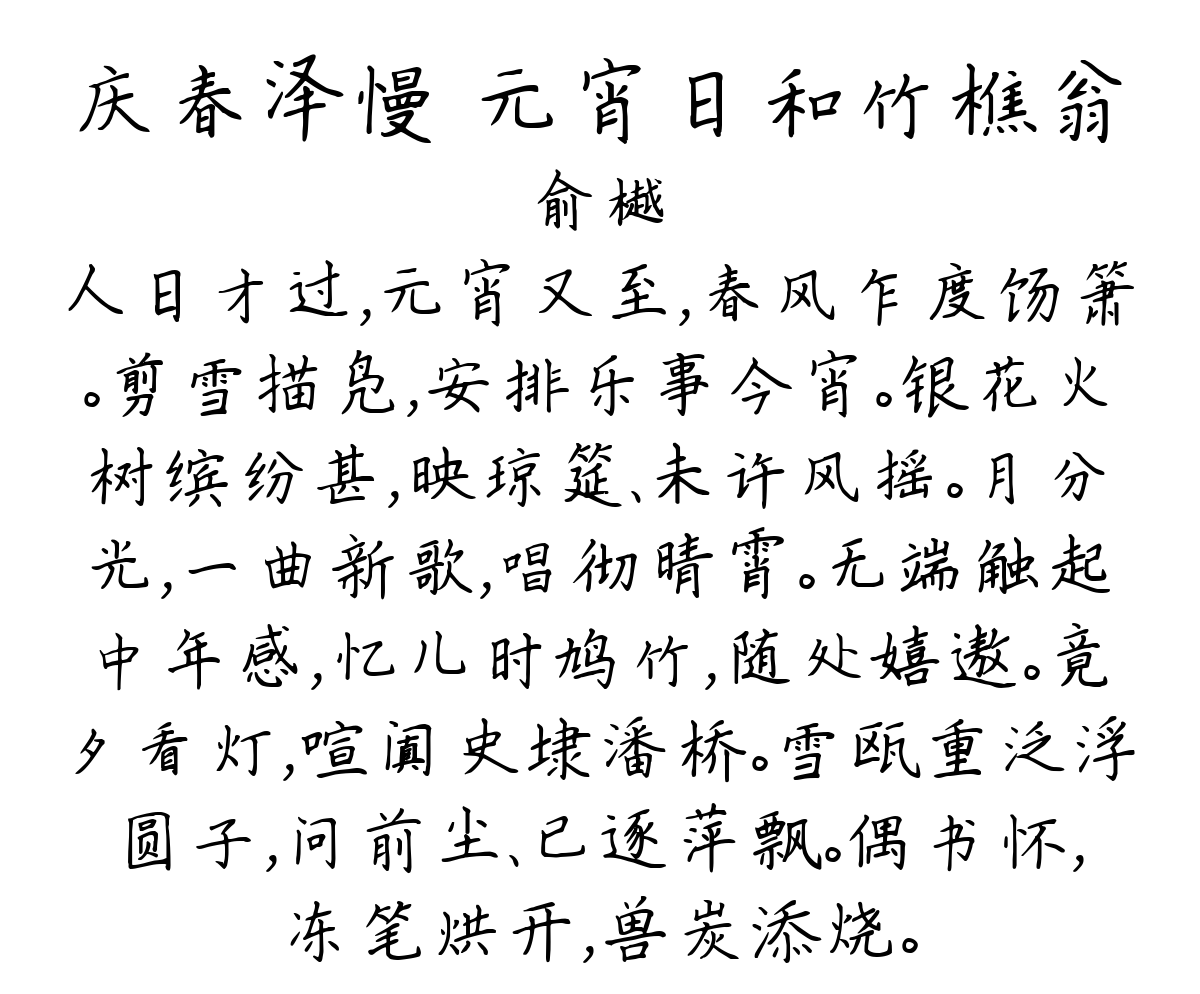 庆春泽慢 元宵日和竹樵翁
俞樾
人日才过,元宵又至,春风乍度饧箫
。剪雪描凫,安排乐事今宵。银花火
树缤纷甚,映琼筵、未许风摇。月分
光,一曲新歌,唱彻晴霄。无端触起
中年感,忆儿时鸠竹,随处嬉遨。竟
夕看灯,喧阗史埭潘桥。雪瓯重泛浮
圆子,问前尘、已逐萍飘。偶书怀,
冻笔烘开,兽炭添烧。